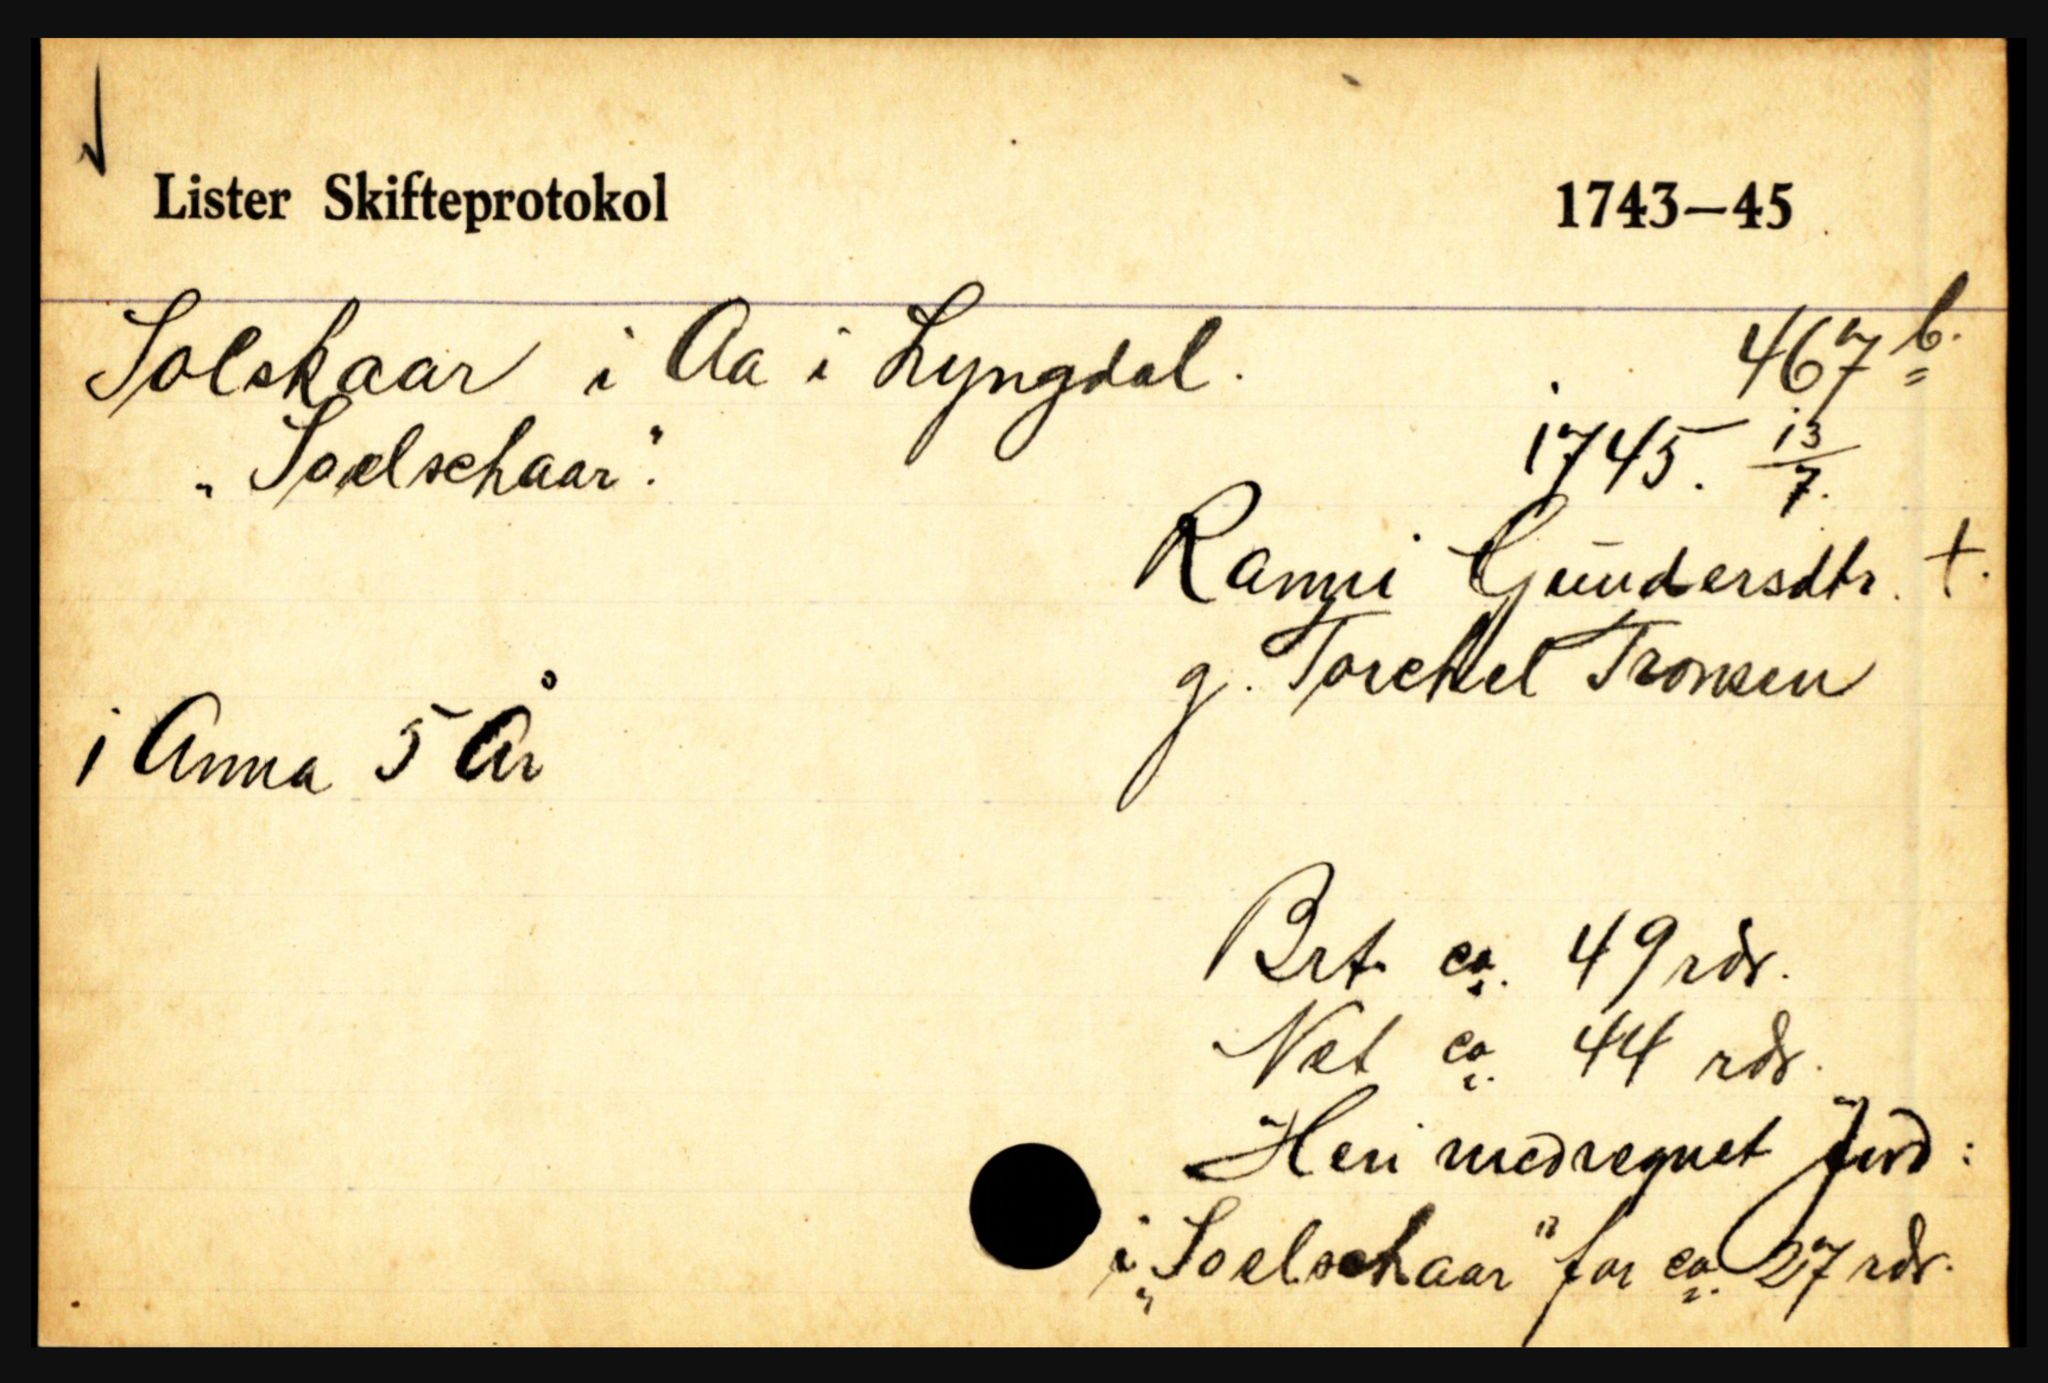 Lister Skifteprotokol 1743–45
Solskaar i Aa i Lyngdal. 467 b.
„Soelschaar". 1745. 13/7.
Ranni Gundersdtr. †.
g. Torchel Tronsen
1 Anna 5 År
Brt. ca. 49 rdr.
Net ca. 44 rdr.
Heri medregnet Jord:
i „Soelschaar" for ca. 27 rdr.